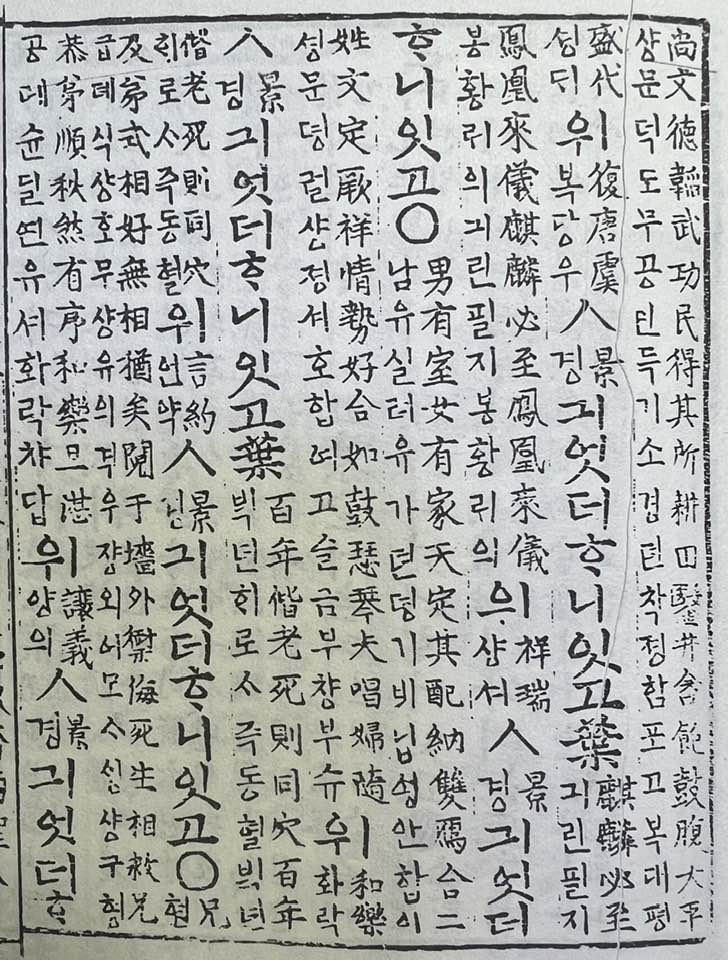 尙文德韜武功民得其所耕田鑿井含飽鼓腹太平
샹문덕도무공민득기소경뎐착졍함포고복대평
盛代위復唐虞ㅅ景긔엇더ᄒᆞ니잇고葉麒麟必至
셩ᄃᆡ 복당우 경 긔린필지
鳳凰來儀麒麟必至鳳凰來儀위祥瑞ㅅ景긔엇더
봉황ᄅᆡ의긔린필지봉황ᄅᆡ의 샹셔 경
ᄒᆞ니잇고○男有室女有家天定其配納雙鴈合二
남유실녀유가텬뎡기비납성안합이
姓文定厥祥情勢好合如鼓瑟琴夫唱婦隨위和樂
셩문뎡궐샹졍셔호합여고슬금부챵부슈 화락
ㅅ景긔엇더ᄒᆞ니잇고葉百年偕老死則同穴百年
경 ᄇᆡᆨ년ᄒᆡ로ᄉᆞ즉동혈ᄇᆡᆨ년
偕老死則同穴위言約ㅅ景긔엇더ᄒᆞ니잇고○兄
ᄒᆡ로ᄉᆞ즉동혈 언약 경 형
及弟式相好無相猶矣鬩于墻外禦侮死生相救兄
급뎨식샹호무샹유의격우쟝외어모ᄉᆞᄉᆡᆼ샹구형
恭弟順秩然有序和樂且湛위讓義ㅅ景긔엇더ᄒᆞ
공데슌딜연유셔화락챠담 양의 경